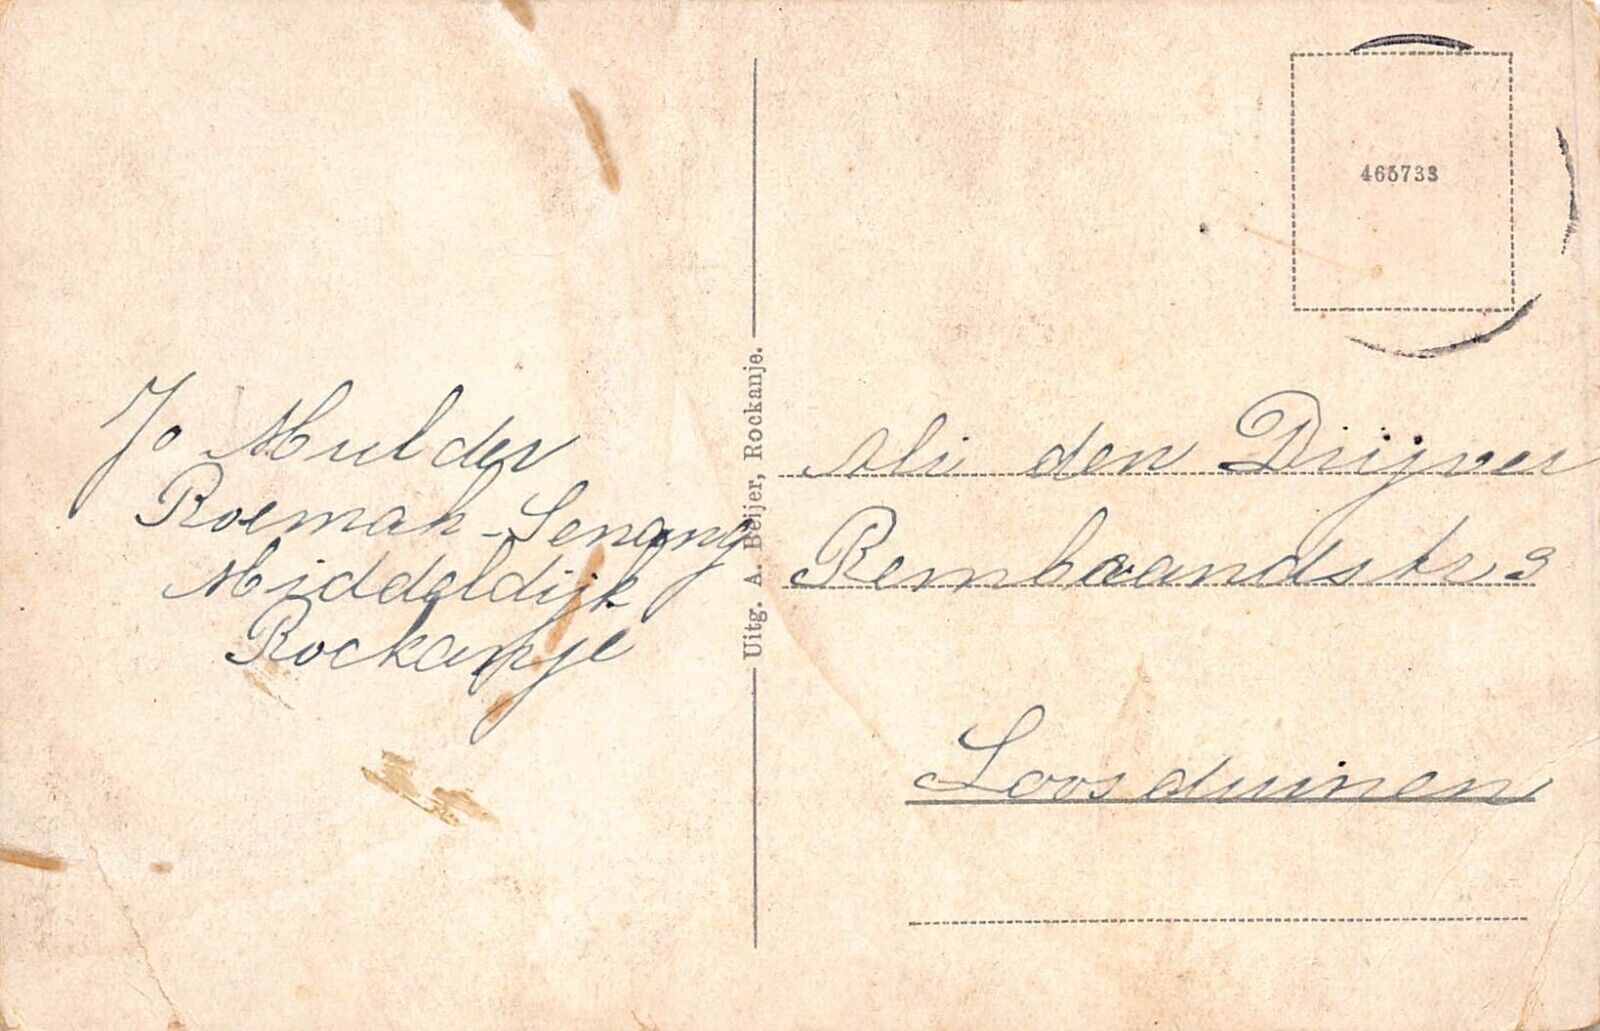 Jo Mulder
Roemah-Senang
Middeldijk
Rockanje
Uitg. A. Beijer, Rockanje.
465733
Ali den Drijver
Rembrandstr 3
Loosduinen